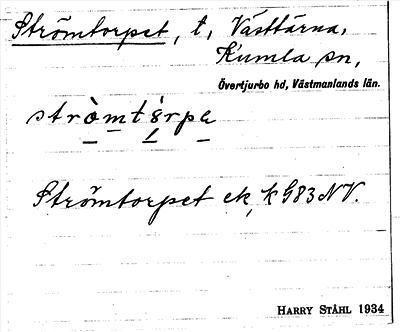 Strömtorpet, t, Västtärna,
Kumla sn,
Övertjurbo hd, Västmanlands län.
Strömtorpet ek, k G83 NV.
HARRY STÅHL 1934